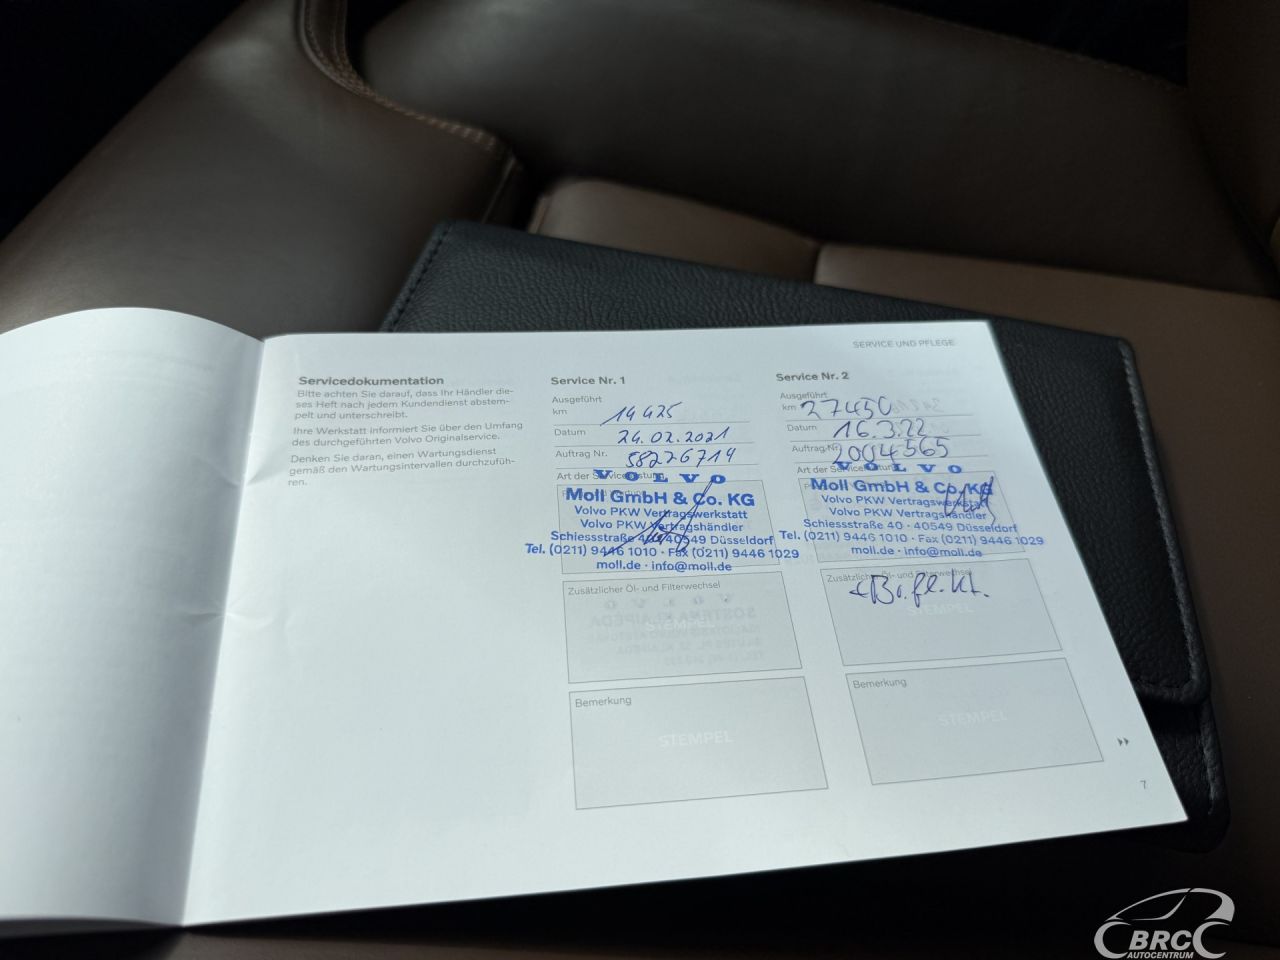 SERVICE UND PFLEGE
Servicedokumentation
Bitte achten Sie darauf, dass Ihr Händler die-
ses Heft nach jedem Kundendienst abstem-
pelt und unterschreibt.
Ihre Werkstatt informiert Sie über den Umfang
des durchgeführten Volvo Originalservice.
Denken Sie daran, einen Wartungsdienst
gemäß den Wartungsintervallen durchzufüh-
ren.
Service Nr. 1
Ausgeführt
km 14425
Datum 24.02.2021
Auftrag Nr. 58226714
Art der Serviceleistung
VOLVO
Moll GmbH & Co. KG
Volvo PKW Vertragswerkstatt
Volvo PKW Vertragshändler
Schiessstraße 40 · 40549 Düsseldorf
Tel. (0211) 9446 1010 · Fax (0211) 9446 1029
moll.de · info@moll.de
Zusätzlicher Öl- und Filterwechsel
STEMPEL
Bemerkung
STEMPEL
Service Nr. 2
Ausgeführt
km 27450
Datum 16.3.22
Auftrag Nr. 2004565
Art der Serviceleistung
VOLVO
Moll GmbH & Co. KG
Volvo PKW Vertragswerkstatt
Volvo PKW Vertragshändler
Schiessstraße 40 · 40549 Düsseldorf
Tel. (0211) 9446 1010 · Fax (0211) 9446 1029
moll.de · info@moll.de
Zusätzlicher Öl- und Filterwechsel
+Br.fl.kt.
STEMPEL
Bemerkung
STEMPEL
7
BRC
AUTOCENTRUM